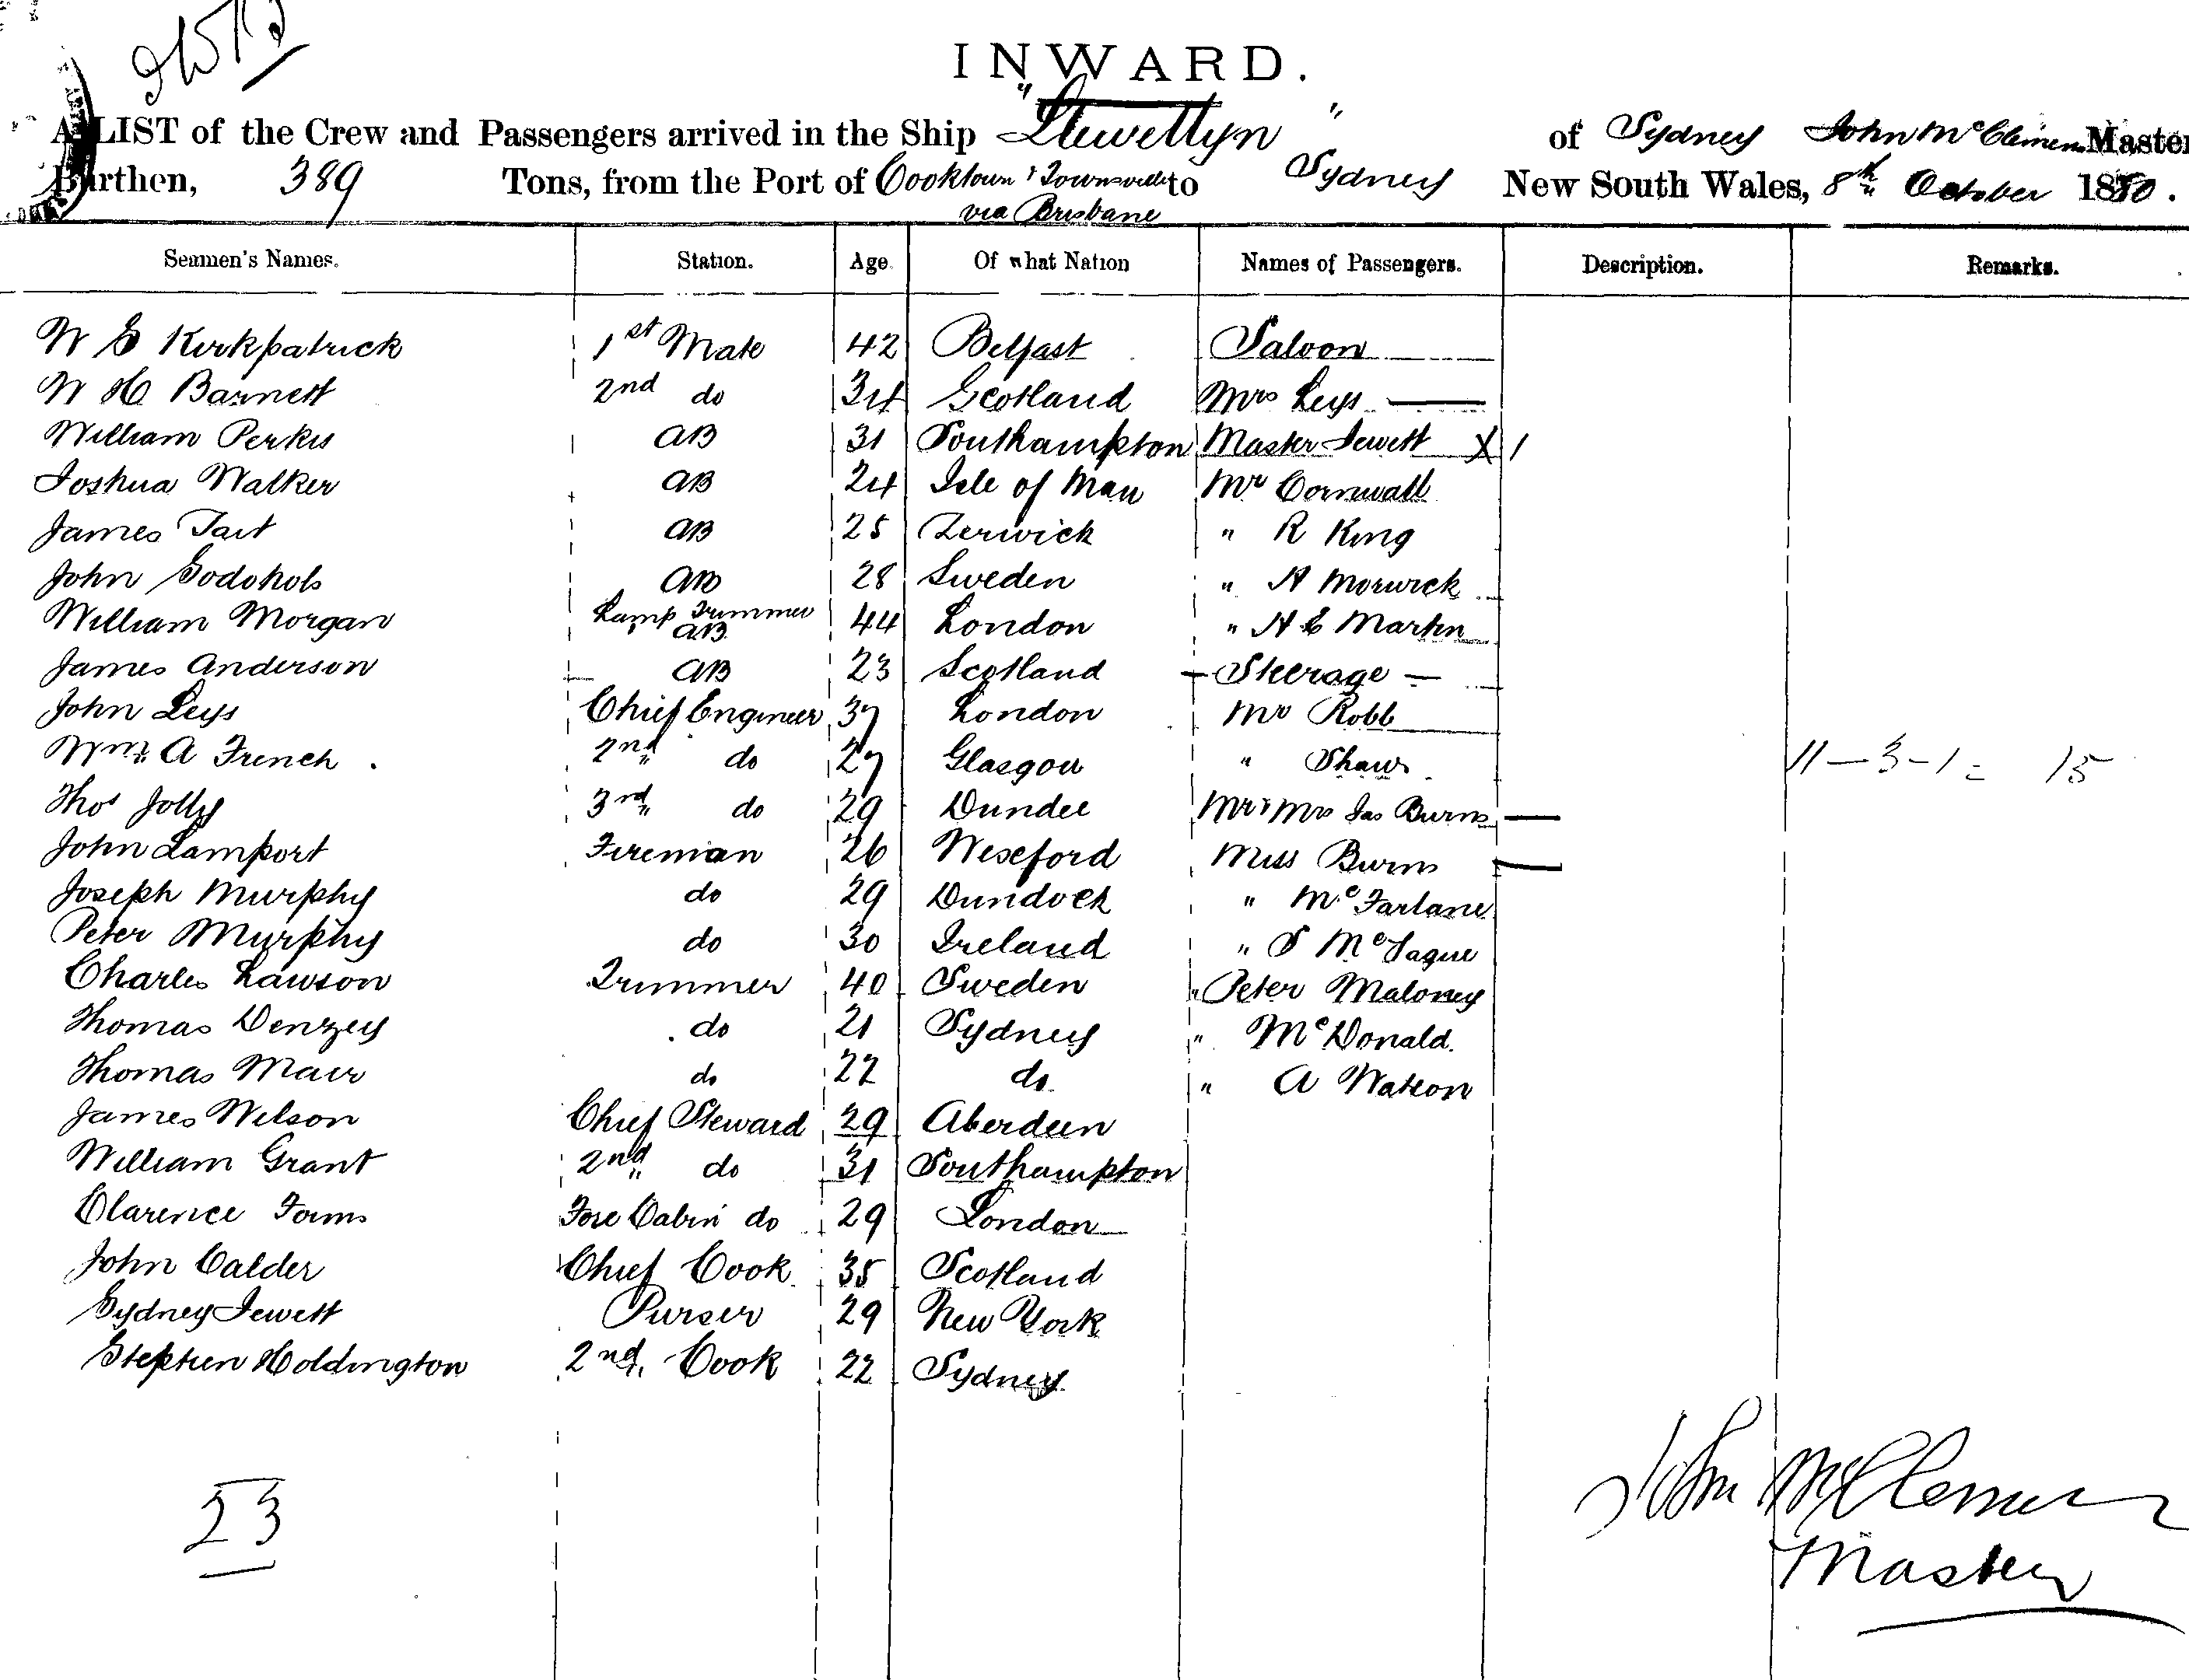 INWARD.
A LIST of the Crew and Passengers arrived in the Ship "Llewellyn" of Sydney John McClemens Master
Burthen, 389 Tons, from the Port of Cooktown & Townsville to Sydney New South Wales, 8th October 1880.
via Brisbane
Seamen's Names. Station. Age. Of what Nation Names of Passengers. Description. Remarks.
W G Kirkpatrick 1st Mate 42 Belfast Saloon
W H Barnett 2nd do 34 Scotland Mrs Leys
William Perkis AB 31 Southampton Master Jewett X 1
Joshua Walker AB 24 Isle of Man Mr Cornwall
James Tait AB 25 Lerwick " R King
John Godohols AB 28 Sweden " A Morwick
William Morgan Lamp Trimmer AB 44 London " A E Martin
James Anderson AB 23 Scotland - Steerage -
John Leys Chief Engineer 37 London Mr Robb
Wm A French 2nd do 27 Glasgow " Shaw 11-3-1= 15
Thos Jolly 3rd do 29 Dundee Mr & Mrs Jas Burns
John Lamport Fireman 26 Wexford Miss Burns
Joseph Murphy do 29 Dundock " McFarlane
Peter Murphy do 30 Ireland " S McTague
Charles Lawson Trimmer 40 Sweden " Peter Maloney
Thomas Denzey do 21 Sydney " McDonald.
Thomas Mair do 22 do " A Watson
James Wilson Chief Steward 29 Aberdeen
William Grant 2nd do 31 Southampton
Clarence Forms Fore Cabin do 29 London
John Calder Chief Cook 35 Scotland
Sydney Jewett Purser 29 New York
Stephen Holdington 2nd Cook 22 Sydney
23
John McClemens
Master